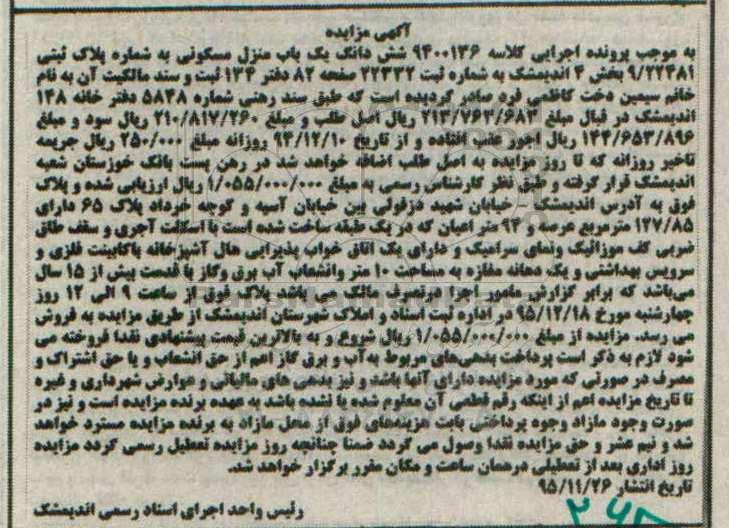 آگهی مزایده
به موجب پرونده اجرایی کلاسه ۹۴۰۰۱۳۶ شش دانگ یک باب منزل مسکونی به شماره پلاک ثبتی
۹/۲۲۴۸۱ بخش ۴ اندیمشک به شماره ثبت ۲۲۳۳۲ صفحه ۸۲ دفتر ۱۳۴ ثبت و سند مالکیت آن به نام
خانم سیمین دخت کاظمی فرد صادر گردیده است که طبق سند رهنی شماره ۵۸۴۸ دفتر خانه ۱۴۸
اندیمشک در قبال مبلغ ۲۱۳/۷۶۳/۶۸۳ ریال اصل طلب و مبلغ ۲۱۰/۸۱۷/۲۶۰ ریال سود و مبلغ
۱۴۴/۶۵۳/۸۹۶ ریال اجور عقب افتاده و از تاریخ ۹۴/۱۲/۱۰ روزانه مبلغ ۲۵۰/۰۰۰ ریال جریمه
تاخیر روزانه که تا روز مزایده به اصل طلب اضافه خواهد شد در رهن پست بانک خوزستان شعبه
اندیمشک قرار گرفته و طبق نظر کارشناس رسمی به مبلغ ۱/۰۵۵/۰۰۰/۰۰۰ ریال ارزیابی شده و پلاک
فوق به آدرس اندیمشک _ خیابان شهید دزفولی بین خیابان آسیه و کوچه خرداد پلاک ۶۵ دارای
۱۲۷/۸۵ مترمربع عرصه و ۹۳ متر اعیان که در یک طبقه ساخت شده است با اسکلت آجری و سقف طاق
ضربی کف موزائیک ونمای سرامیک و دارای یک اتاق خواب پذیرایی هال آشپزخانه باکابینت فلزی و
سرویس بهداشتی و یک دهانه مغازه به مساحت ۱۰ متر وانشعاب آب برق وگاز با قدمت بیش از ۱۵ سال
میباشد که برابر گزارش مامور اجرا درتصرف مالک می باشد پلاک فوق از ساعت ۹ الی ۱۲ روز
چهارشنبه مورخ ۹۵/۱۲/۱۸ در اداره ثبت اسناد و املاک شهرستان اندیمشک از طریق مزایده به فروش
می رسد. مزایده از مبلغ ۱/۰۵۵/۰۰۰/۰۰۰ ریال شروع و به بالاترین قیمت پیشنهادی نقدا فروخته می
شود لازم به ذکر است پرداخت بدهیهای مربوط به آب و برق گاز اعم از حق انشعاب و یا حق اشتراک و
مصرف در صورتی که مورد مزایده دارای آنها باشد و نیز بدهی های مالیاتی و عوارض شهرداری و غیره
تا تاریخ مزایده اعم از اینکه رقم قطعی آن معلوم شده یا نشده باشد به عهده برنده مزایده است و نیز در
صورت وجود مازاد وجوه پرداختی بابت هزینههای فوق از محل مازاد به برنده مزایده مسترد خواهد
شد و نیم عشر و حق مزایده نقدا وصول می گردد ضمنا چنانچه روز مزایده تعطیل رسمی گردد مزایده
روز اداری بعد از تعطیلی درهمان ساعت و مکان مقرر برگزار خواهد شد.
تاریخ انتشار ۹۵/۱۱/۲۶
رئیس واحد اجرای اسناد رسمی اندیمشک